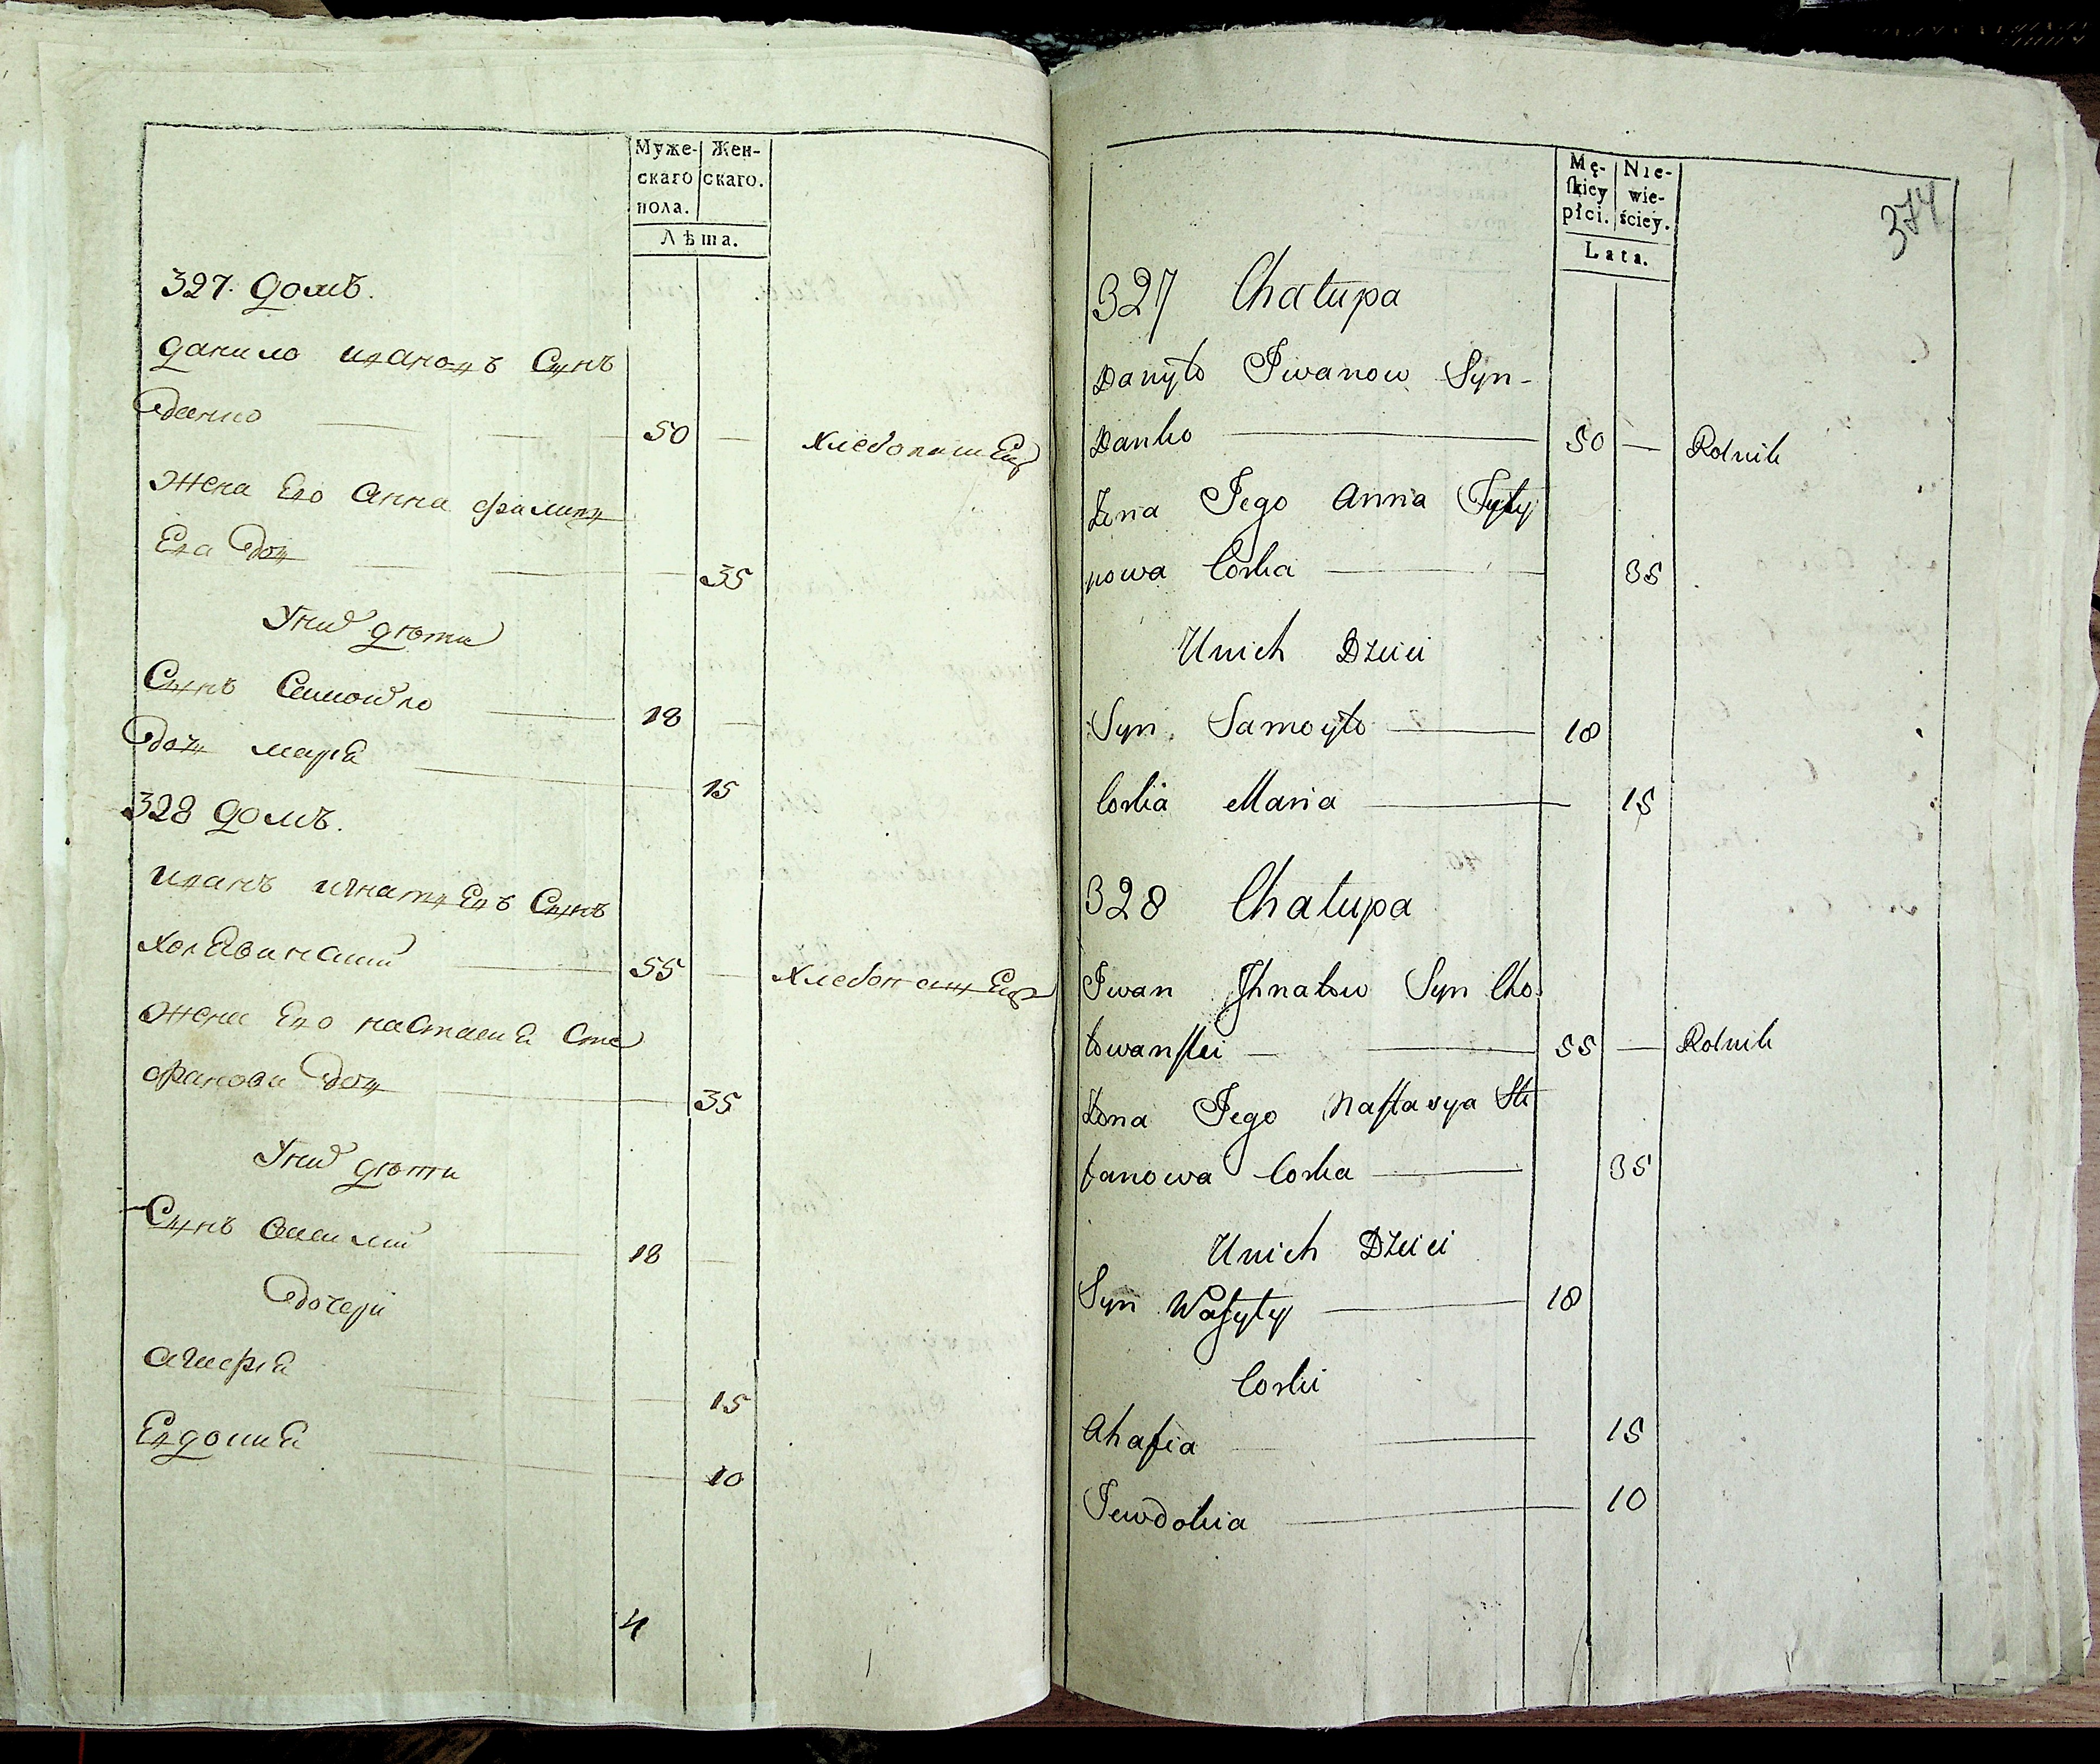 Муже- Жен-
скаго скаго.
пола.
Лѣта.
327. домъ.
данило ивановъ Сынъ
Данко — 50 — хлебопашец
жена Его анна филипо
Ева Доч — 35
У них дѣти
Сынъ Самойло — 18 —
Доч марія — 15
328 домъ.
иванъ игнатьевъ Сынъ
холаванский — 55 — хлебопашец
жена Его настасия Сте
фанова Доч — 35
У них дѣти
Сынъ василий — 18 —
Дочери
агафия — 15
Евдокия — 10
4
Mę- Nie-
skiey wie-
płci. ściey.
Lata.
374
327 Chałupa
Danyło Iwanow Syn
Danko — 50 — Rolnik
Żona Jego Anna Fyły
nowa Corka — 35
Unich Dzieci
Syn Samoyło — 18
Corka Maria — 15
328 Chałupa
Iwan Ihnatow Syn Cho
łowanski — 55 — Rolnik
Żona Jego Nastasya Ste
fanowa Corka — 35
Unich Dzieci
Syn Wasyly — 18
Corki
Ahafia — 15
Jewdokia — 10